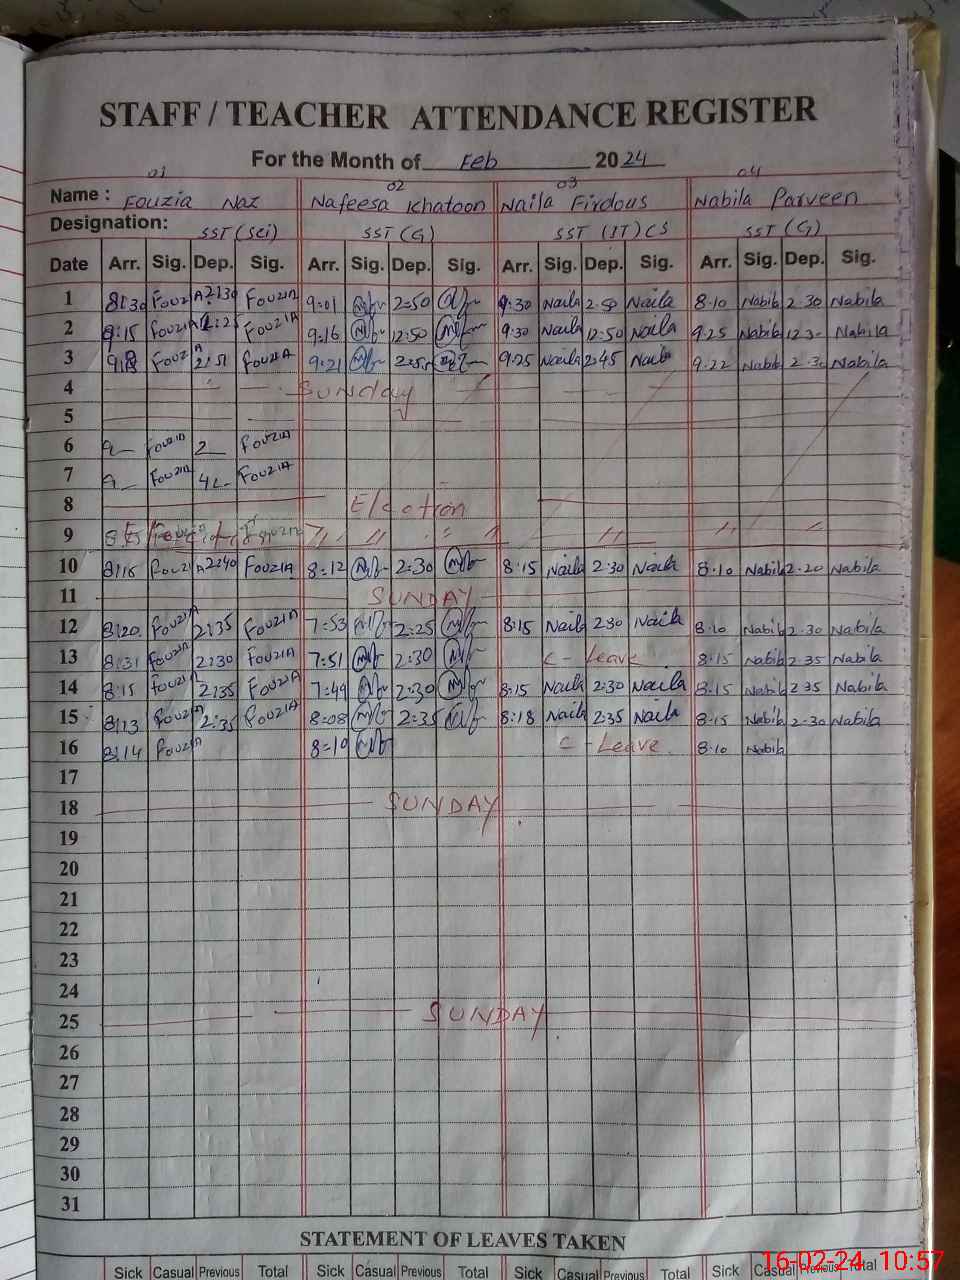 STAFF / TEACHER ATTENDANCE REGISTER
For the Month of Feb 2024
01 02 03 04
Name : Fouzia Naz Nafeesa Khatoon Naila Firdous Nabila Parveen
Designation: SST (Sci) SST (G) SST (IT) CS SST (G)
Date Arr. Sig. Dep. Sig. Arr. Sig. Dep. Sig. Arr. Sig. Dep. Sig. Arr. Sig. Dep. Sig.
1 8:30 FouziA 2:30 FouziA 9:01 2:50 9:30 Naila 2:50 Naila 8:10 Nabila 2:30 Nabila
2 9:15 FouziA FouziA 9:16 12:50 9:30 Naila 12:50 Naila 9:25 Nabila Nabila
3 FouziA FouziA 9:21 9:25 Naila 2:45 Naila 9:22 Nabila 2:30 Nabila
4 Sunday
5
6 9 FouziA 2 FouziA
7 9 FouziA FouziA
8 Election
9 〃 〃 〃 〃 〃 〃 〃
10 8:16 FouziA 2:40 FouziA 8:12 2:30 8:15 Naila 2:30 Naila 8:10 Nabila 2:20 Nabila
11 SUNDAY
12 8:20 FouziA 2:35 FouziA 7:53 2:25 8:15 Naila 2:30 Naila 8:10 Nabila 2:30 Nabila
13 8:31 FouziA 2:30 FouziA 7:51 2:30 C - Leave 8:15 Nabila 2:35 Nabila
14 8:15 FouziA 2:35 FouziA 7:49 2:30 8:15 Naila 2:30 Naila 8:15 Nabila 2:35 Nabila
15 8:13 FouziA 2:35 FouziA 8:08 2:35 8:18 Naila 2:35 Naila 8:15 Nabila 2:30 Nabila
16 8:14 FouziA 8:10 C - Leave 8:10 Nabila
17
18 SUNDAY
19
20
21
22
23
24
25 SUNDAY
26
27
28
29
30
31
STATEMENT OF LEAVES TAKEN
Sick Casual Previous Total Sick Casual Previous Total Sick Casual Previous Total Sick Casual Previous Total
16-02-24 10:57